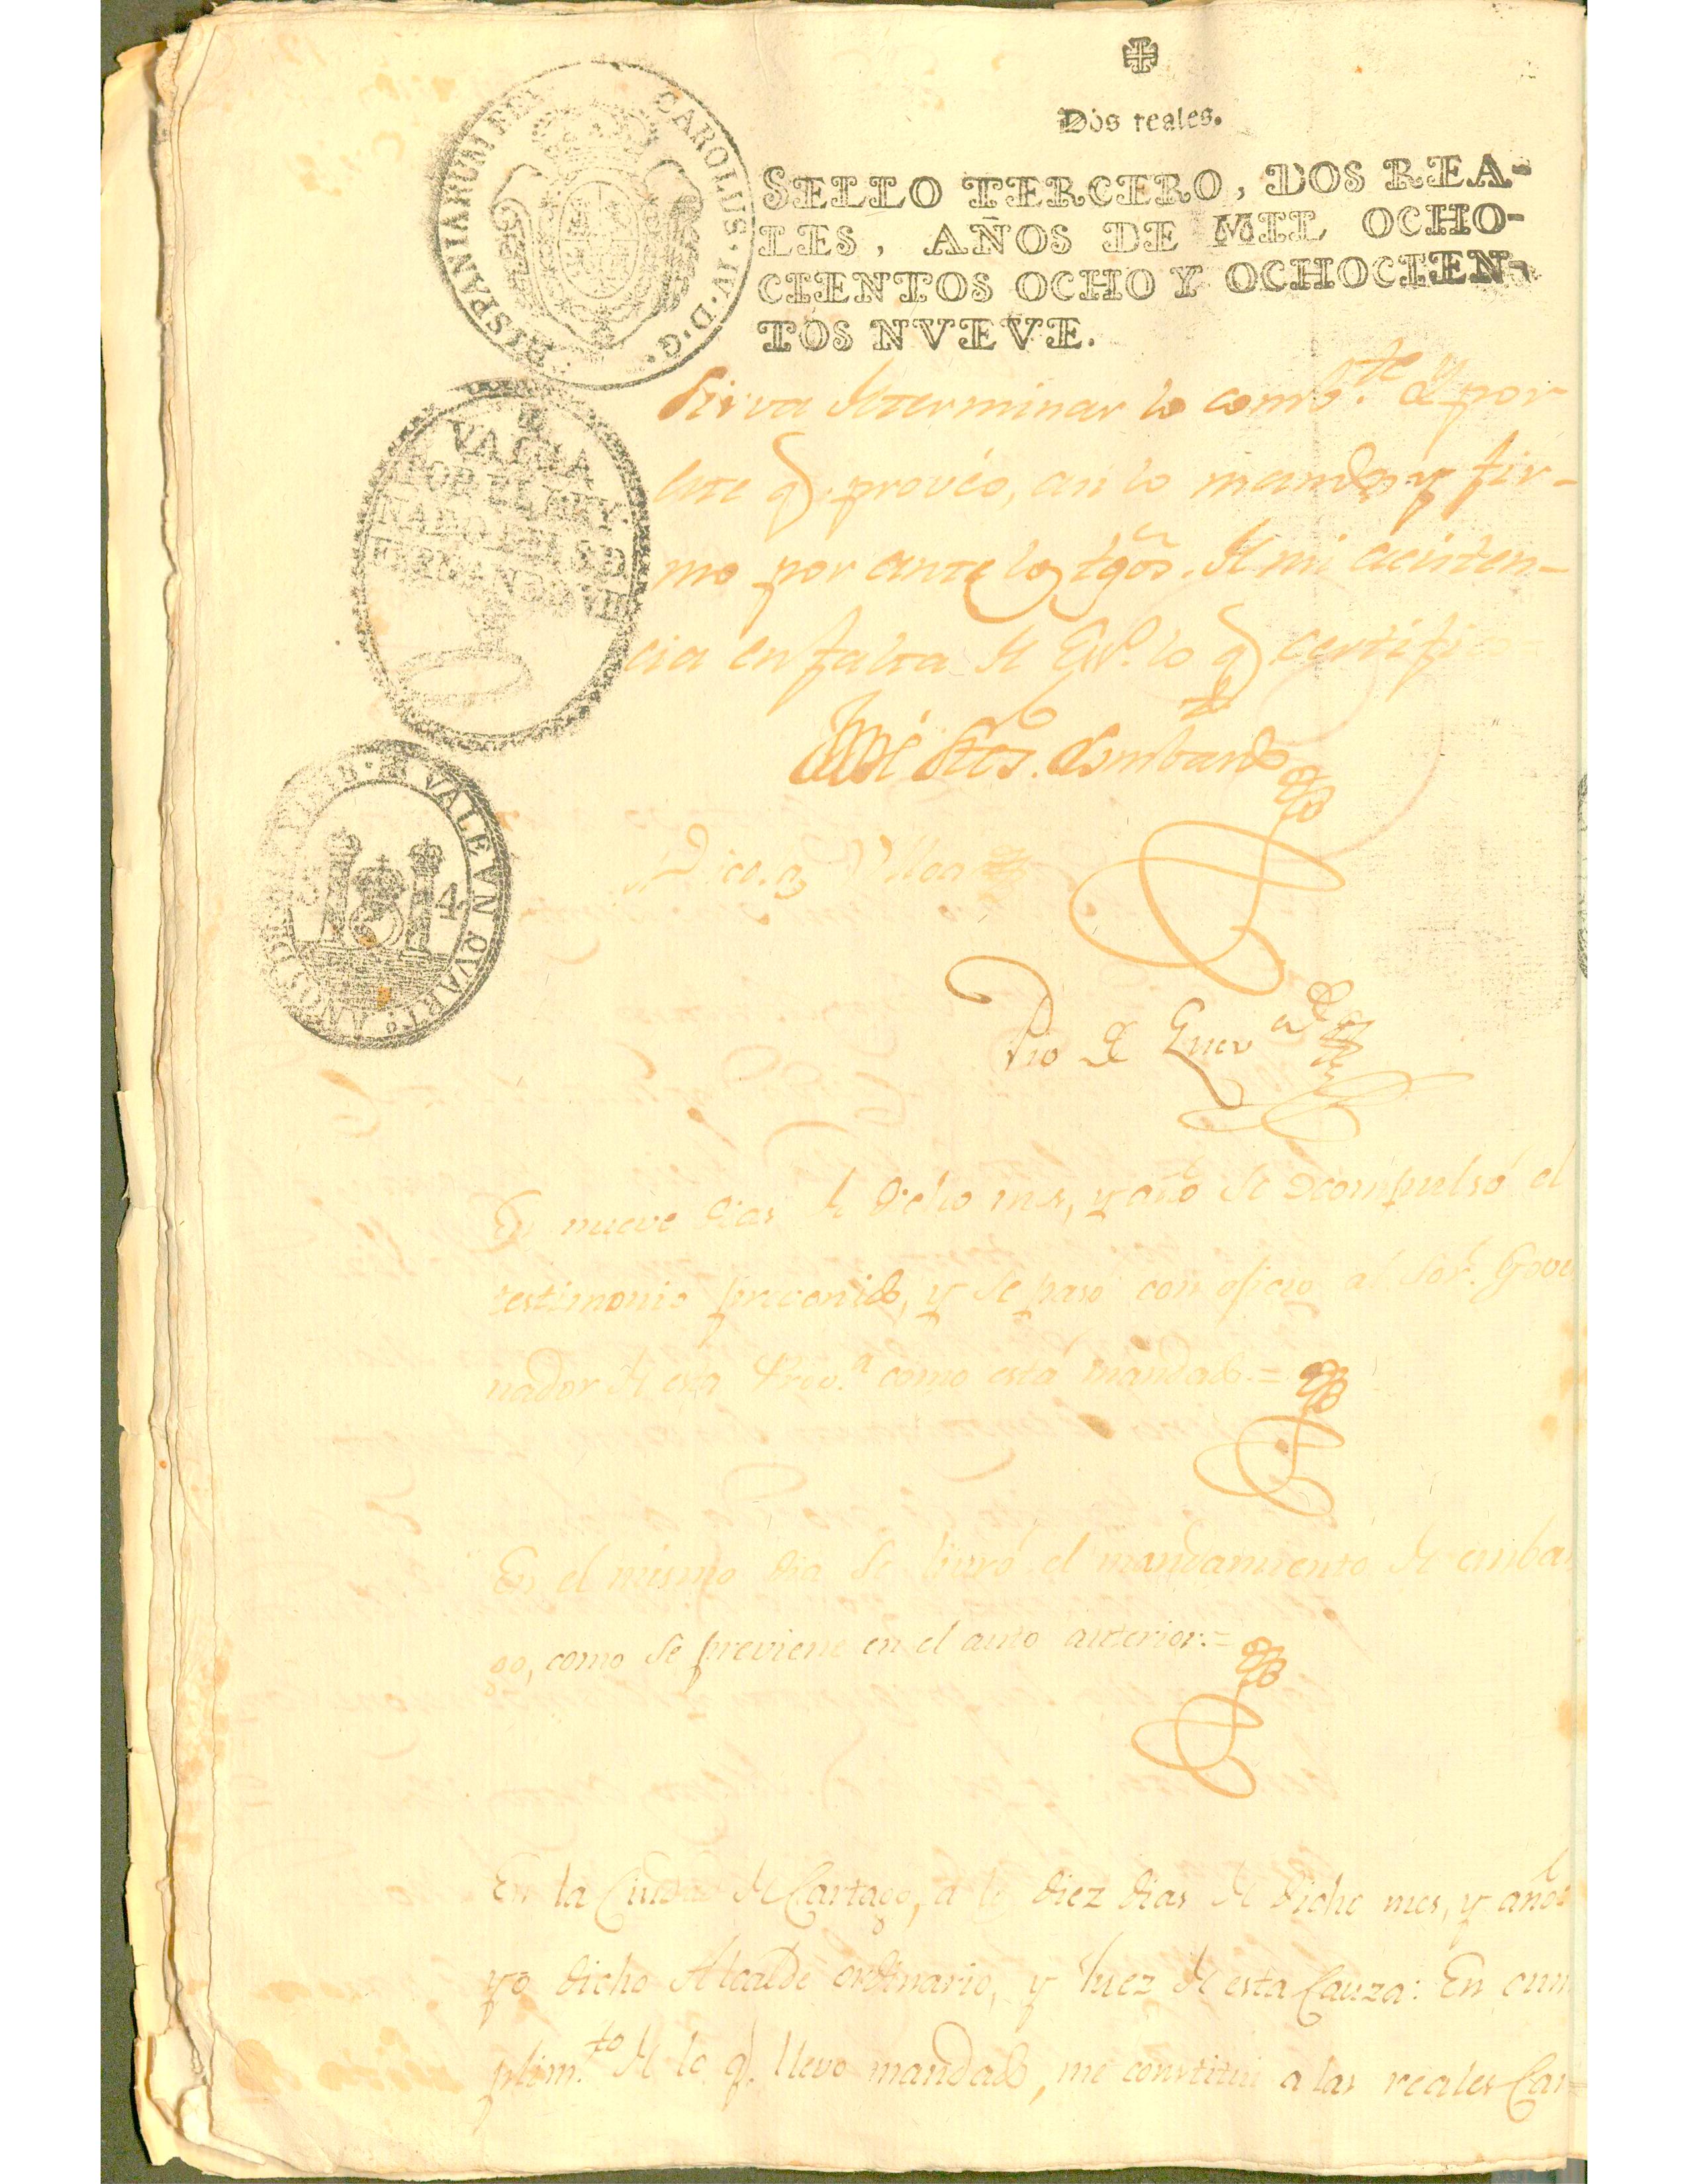 Dos reales.
SELLO TERCERO, DOS REA-
LES, AÑOS DE MIL OCHO-
CIENTOS OCHO Y OCHOCIEN-
TOS NVEVE.
CAROLUS·IV·D·G·HISPANIARUM REX
VALGA
POR EL REY-
NADO DEL S.D.
FERNANDO VII
VALE VN QVART
sirva determinar lo combte. Y por
este q. proveo, asi lo mando, y fir-
mo por ante los tgos. de mi acisten-
cia en falta de Esno. lo q certifi
Stos. Lombardo
Nico. Ulloa
Pio
En nueve dias de dicho mes, y año se decompulsó el
testimonio prevenido, y se paso con oficio al Sor. Gove
nador de esta Prova. como está mandado.=
En el mismo dia se livró el mandamiento de embar
go, como se previene en el auto anterior.=
En la Ciudad de Cartago, a los diez dias de dicho mes, y año:
yo dicho Alcalde ordinario, y Juez de esta Cauza: En cum
plimto. de lo q. llevo mandado, me constitui a las reales Car-